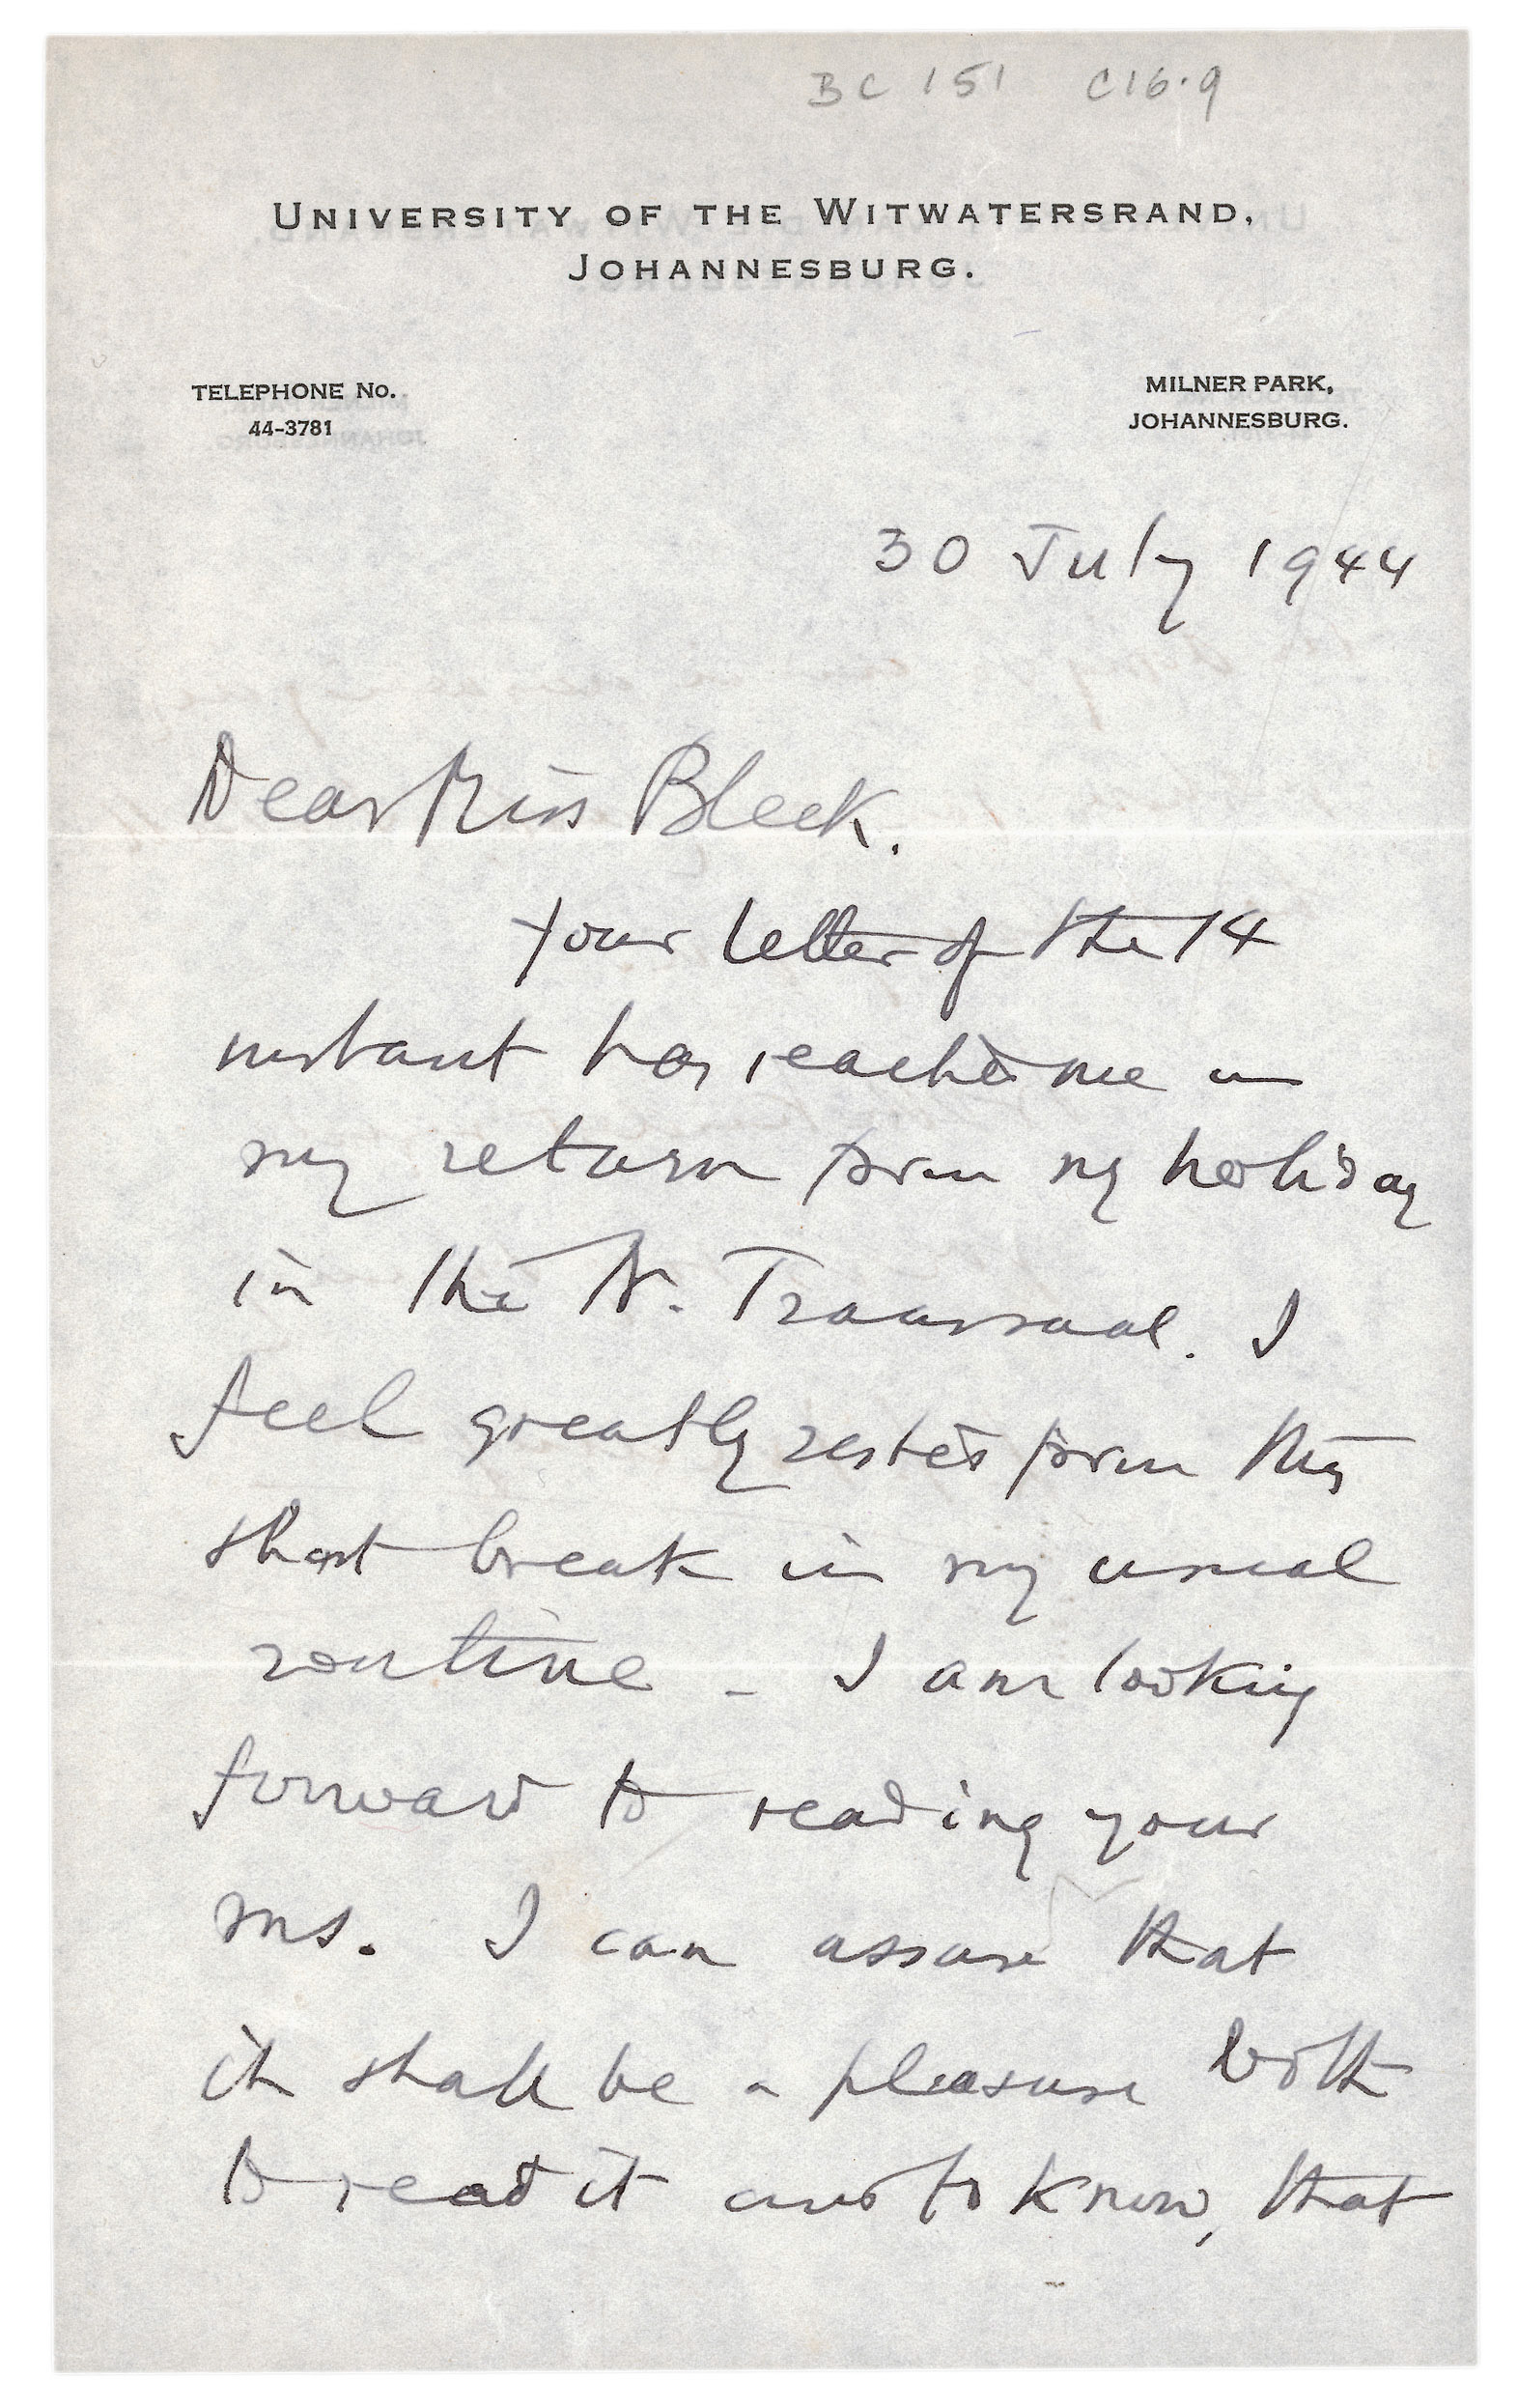 BC 151 C16.9
UNIVERSITY OF THE WITWATERSRAND,
JOHANNESBURG.
TELEPHONE No.
44-3781
MILNER PARK,
JOHANNESBURG.
30 July 1944
Dear Miss Bleek.
Your letter of the 14
instant has reached me on
my return from my holiday
in the N. Transvaal. I
feel greatly rested from this
short break in my usual
routine - I am looking
forward to reading your
ms. I can assure that
it shall be a pleasure both
to read it and to know, that